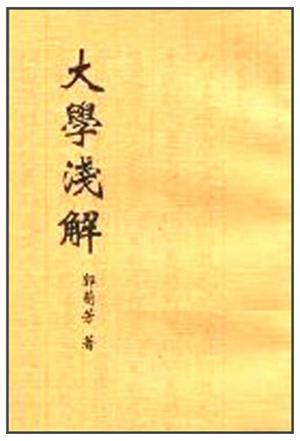 大學淺解
郭菊芳 著